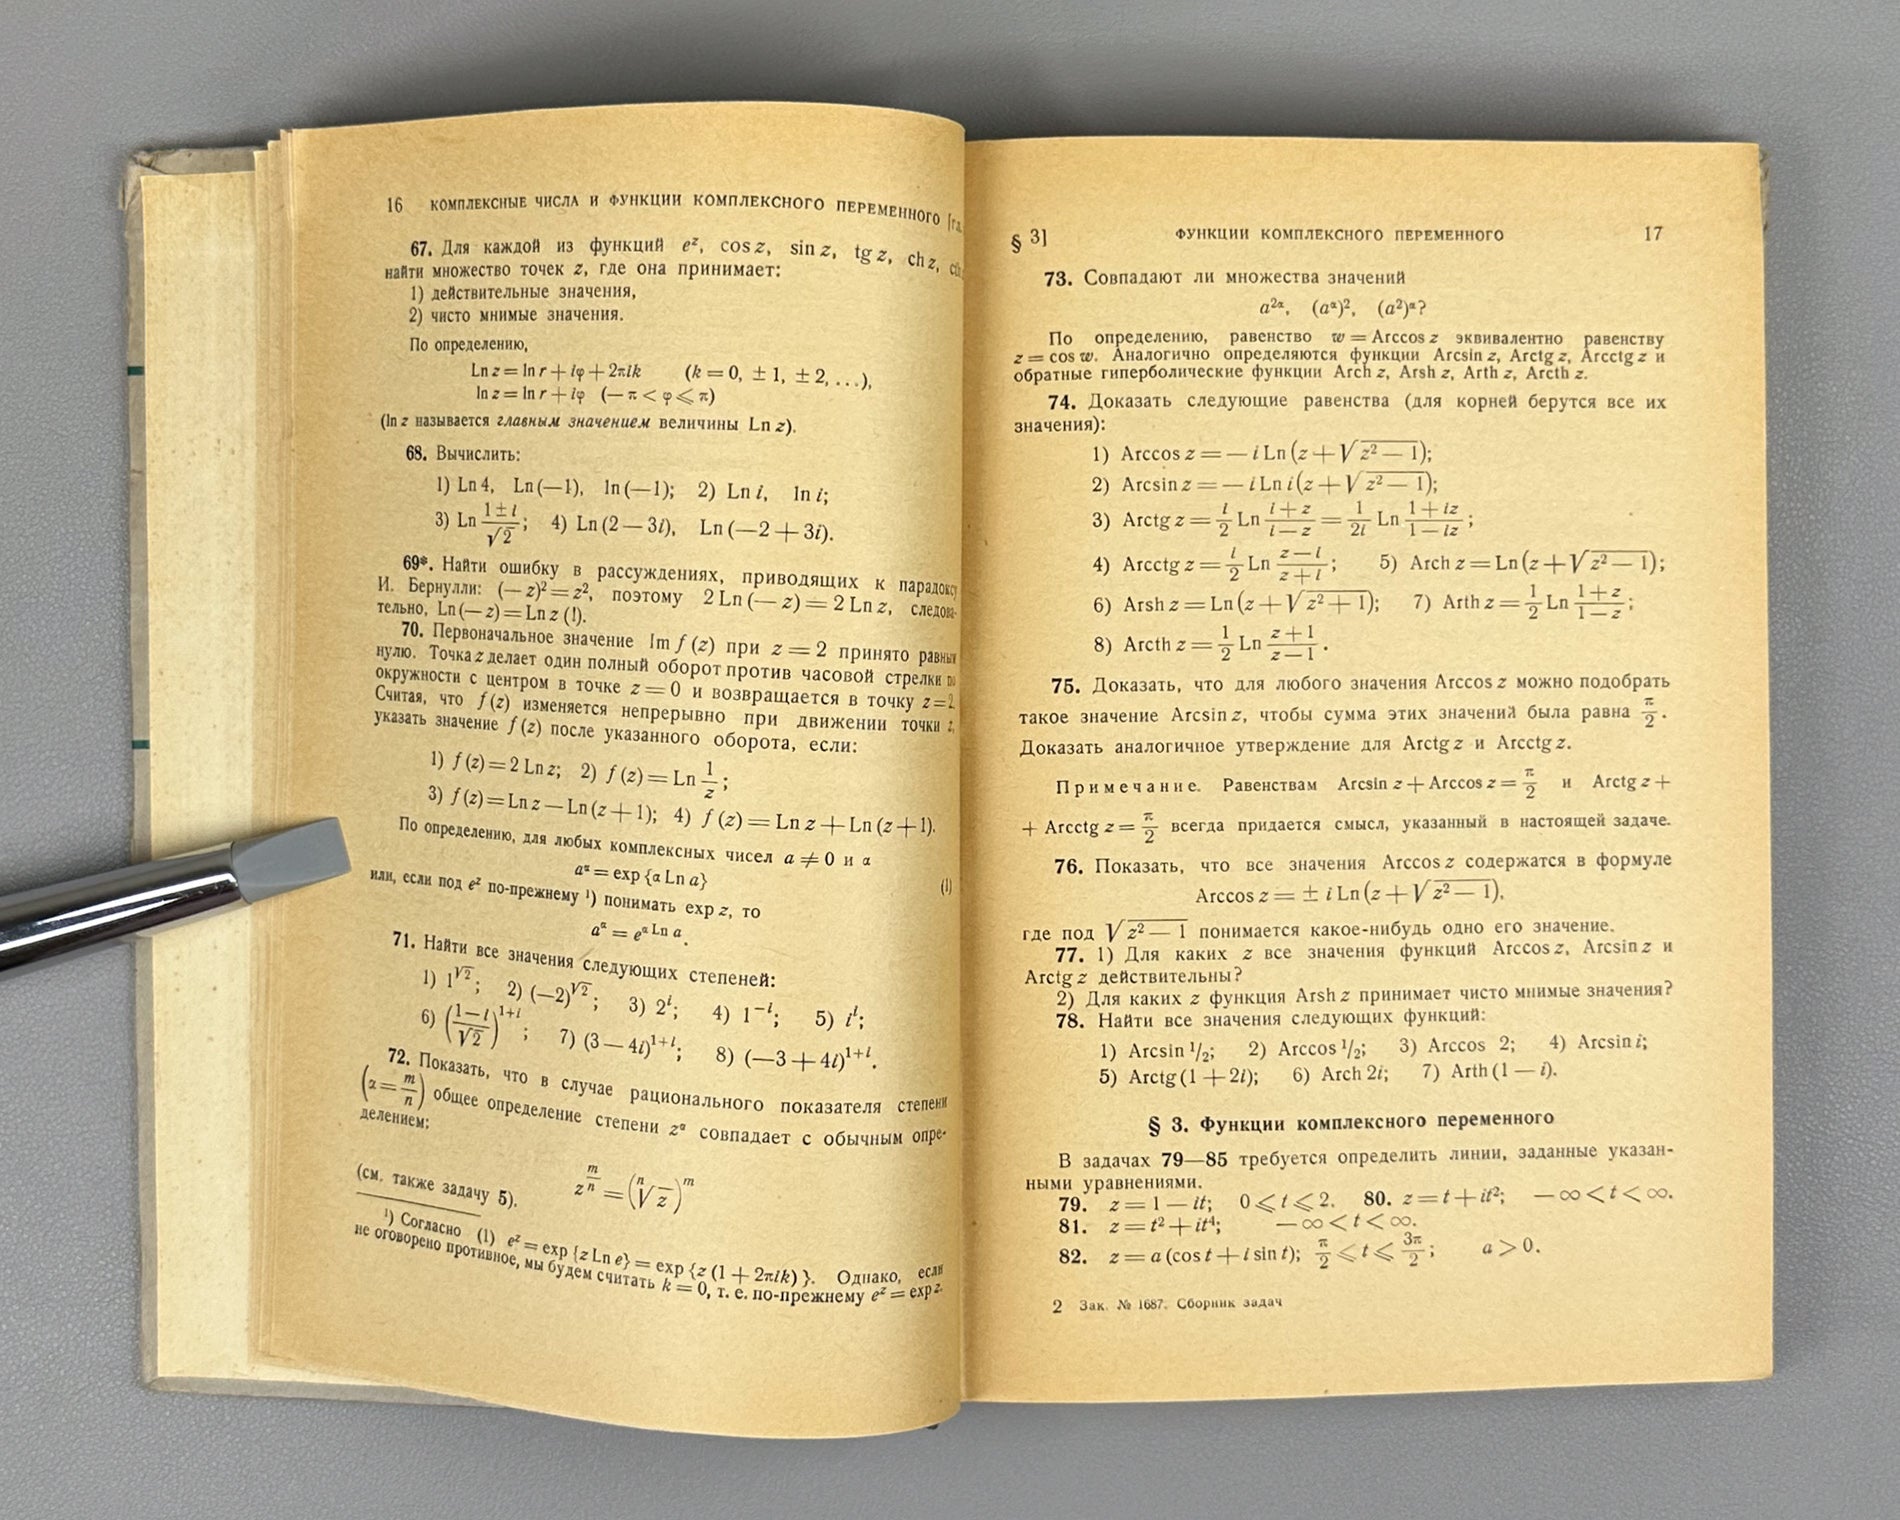 16 КОМПЛЕКСНЫЕ ЧИСЛА И ФУНКЦИИ КОМПЛЕКСНОГО ПЕРЕМЕННОГО
67. Для каждой из функций eᶻ, cos z, sin z, tg z, ch z,
найти множество точек z, где она принимает:
1) действительные значения,
2) чисто мнимые значения.
По определению,
Ln z = ln r + iφ + 2πik (k = 0, ± 1, ± 2, ...),
ln z = ln r + iφ (— π < φ ⩽ π)
(ln z называется главным значением величины Ln z).
68. Вычислить:
1) Ln 4, Ln (—1), ln (—1); 2) Ln i, ln i;
3) Ln (1 ± i)/√2; 4) Ln (2 — 3i), Ln (—2 + 3i).
69*. Найти ошибку в рассуждениях, приводящих к парадоксу
И. Бернулли: (— z)² = z², поэтому 2 Ln (— z) = 2 Ln z, следова-
тельно, Ln (— z) = Ln z (!).
70. Первоначальное значение Im f (z) при z = 2 принято равным
нулю. Точка z делает один полный оборот против часовой стрелки по
окружности с центром в точке z = 0 и возвращается в точку z = 2.
Считая, что f (z) изменяется непрерывно при движении точки z,
указать значение f (z) после указанного оборота, если:
1) f (z) = 2 Ln z; 2) f (z) = Ln 1/z;
3) f (z) = Ln z — Ln (z + 1); 4) f (z) = Ln z + Ln (z + 1).
По определению, для любых комплексных чисел a ≠ 0 и α
a^α = exp {α Ln a} (1)
или, если под eᶻ по-прежнему ¹) понимать exp z, то
a^α = e^(α Ln a).
71. Найти все значения следующих степеней:
1) 1^√2; 2) (—2)^√2; 3) 2ⁱ; 4) 1⁻ⁱ; 5) iⁱ;
6) ((1 — i)/√2)¹⁺ⁱ; 7) (3 — 4i)¹⁺ⁱ; 8) (—3 + 4i)¹⁺ⁱ.
72. Показать, что в случае рационального показателя степени
(α = m/n) общее определение степени z^α совпадает с обычным опре-
делением:
z^(m/n) = (ⁿ√z)^m
(см. также задачу 5).
¹) Согласно (1) eᶻ = exp {z Ln e} = exp {z (1 + 2πik)}. Однако, если
не оговорено противное, мы будем считать k = 0, т. е. по-прежнему eᶻ = exp z.
§ 3] ФУНКЦИИ КОМПЛЕКСНОГО ПЕРЕМЕННОГО 17
73. Совпадают ли множества значений
a^(2α), (a^α)², (a²)^α?
По определению, равенство w = Arccos z эквивалентно равенству
z = cos w. Аналогично определяются функции Arcsin z, Arctg z, Arcctg z и
обратные гиперболические функции Arch z, Arsh z, Arth z, Arcth z.
74. Доказать следующие равенства (для корней берутся все их
значения):
1) Arccos z = — i Ln (z + √(z² — 1));
2) Arcsin z = — i Ln i (z + √(z² — 1));
3) Arctg z = i/2 Ln (i + z)/(i — z) = 1/2i Ln (1 + iz)/(1 — iz);
4) Arcctg z = i/2 Ln (z — i)/(z + i); 5) Arch z = Ln (z + √(z² — 1));
6) Arsh z = Ln (z + √(z² + 1)); 7) Arth z = 1/2 Ln (1 + z)/(1 — z);
8) Arcth z = 1/2 Ln (z + 1)/(z — 1).
75. Доказать, что для любого значения Arccos z можно подобрать
такое значение Arcsin z, чтобы сумма этих значений была равна π/2.
Доказать аналогичное утверждение для Arctg z и Arcctg z.
Примечание. Равенствам Arcsin z + Arccos z = π/2 и Arctg z +
+ Arcctg z = π/2 всегда придается смысл, указанный в настоящей задаче.
76. Показать, что все значения Arccos z содержатся в формуле
Arccos z = ± i Ln (z + √(z² — 1)),
где под √(z² — 1) понимается какое-нибудь одно его значение.
77. 1) Для каких z все значения функций Arccos z, Arcsin z и
Arctg z действительны?
2) Для каких z функция Arsh z принимает чисто мнимые значения?
78. Найти все значения следующих функций:
1) Arcsin ¹/₂; 2) Arccos ¹/₂; 3) Arccos 2; 4) Arcsin i;
5) Arctg (1 + 2i); 6) Arch 2i; 7) Arth (1 — i).
§ 3. Функции комплексного переменного
В задачах 79—85 требуется определить линии, заданные указан-
ными уравнениями.
79. z = 1 — it; 0 ⩽ t ⩽ 2. 80. z = t + it²; — ∞ < t < ∞.
81. z = t² + it⁴; — ∞ < t < ∞.
82. z = a (cos t + i sin t); π/2 ⩽ t ⩽ 3π/2; a > 0.
2 Зак. № 1687. Сборник задач